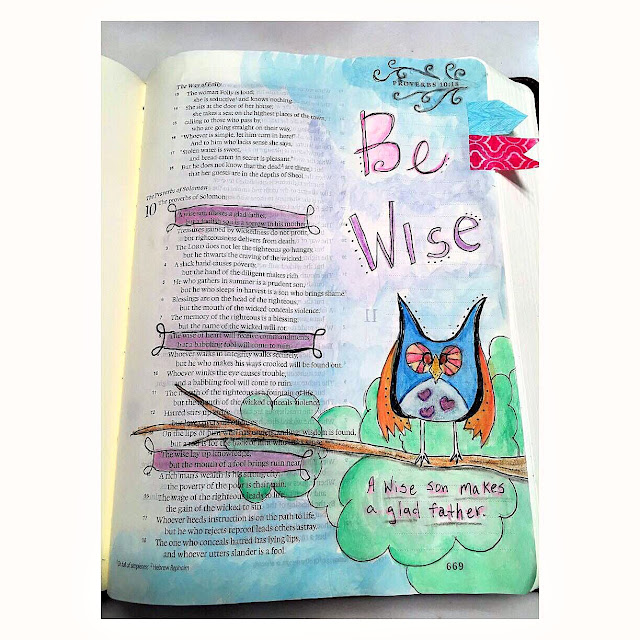 The Way of Folly
13 The woman Folly is loud;
she is seductive and knows nothing.
14 She sits at the door of her house;
she takes a seat on the highest places of the town,
15 calling to those who pass by,
who are going straight on their way,
16 "Whoever is simple, let him turn in here!"
And to him who lacks sense she says,
17 "Stolen water is sweet,
and bread eaten in secret is pleasant."
18 But he does not know that the dead are there,
that her guests are in the depths of Sheol.
The Proverbs of Solomon
10 The proverbs of Solomon.
A wise son makes a glad father,
but a foolish son is a sorrow to his mother.
Treasures gained by wickedness do not profit,
but righteousness delivers from death.
3 The LORD does not let the righteous go hungry,
but he thwarts the craving of the wicked.
4 A slack hand causes poverty,
but the hand of the diligent makes rich.
5 He who gathers in summer is a prudent son,
but he who sleeps in harvest is a son who brings shame.
6 Blessings are on the head of the righteous,
but the mouth of the wicked conceals violence.
7 The memory of the righteous is a blessing,
but the name of the wicked will rot.
The wise of heart will receive commandments,
but a babbling fool will come to ruin.
Whoever walks in integrity walks securely,
but he who makes his ways crooked will be found out.
10 Whoever winks the eye causes trouble,
and a babbling fool will come to ruin.
11 The mouth of the righteous is a fountain of life,
but the mouth of the wicked conceals violence.
12 Hatred stirs up
but love
On the lips of him who has wisdom is found,
but a rod is for the back of
The wise lay up knowledge,
but the mouth of a fool brings ruin near.
A rich man's wealth is his strong city;
the poverty of the poor is their ruin.
16 The wage of the righteous leads to life,
the gain of the wicked to sin.
17 Whoever heeds instruction is on the path to life,
but he who rejects reproof leads others astray.
18 The one who conceals hatred has lying lips,
and whoever utters slander is a fool.
Hebrew Rephaim
PROVERBS 10:18
Be
Wise
A wise son makes
a glad father.
669